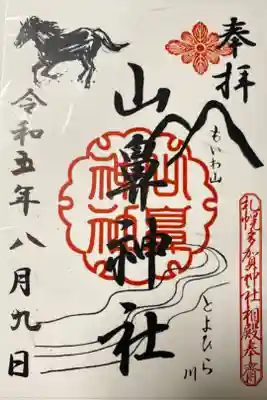 奉拝
もいわ山
札幌多賀神社相殿奉斎
山鼻神社
山鼻神社
とよひら川
令和五年八月九日